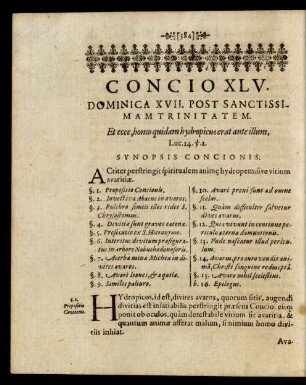 [384]
CONCIO XLV.
DOMINICA XVII. POST SANCTISSI-
MAM TRINITATEM.
Et ecce, homo quidam hydropicus erat ante illum,
Luc. 14. ℣. 2.
SYNOPSIS CONCIONIS.
Acriter perstringit spiritualem animę hydropem, sive vitium
avaritiæ.
§. 1. Propositio Concionis.
§. 2. Invectiva Abacuc in avaros.
§. 3. Pulchro simili illos ridet S.
Chrysostomus.
§. 4. Divitiæ sunt graves catenæ.
§. 5.
§. 6. Interitus divitum præfigura-
tus in arbore Nabuchodonosoris.
§. 7. Acerba minæ Michea in di-
vites avaros.
§. 8. Avari leones, & aquila.
§. 9. Similes paliuro.
§. 10. Avari proni sunt ad omne
scelus.
§. 11. Quàm difficulter salvetur
dives avarus.
§. 12. Quia versant in continuo pe-
riculo æternæ damnationis.
§. 13. Unde nascatur illud pericu-
lum.
§. 14. Avarus pro auro vendit ani-
mã, Christi sanguine redemptã.
§. 15. Avaro nihil scelestius.
§. 16. Epilogus.
§. 1.
Propositio
Concionis.
Hydropicos, id est, divites avaros, quorum sitis, augendi
divitias est insatiabilis perstringit præsens Concio. eisq;
ponit ob oculos, quàm detestabile vitium sit avaritia, &
quantum animæ afferat malum, si nimium homo divi-
tiis inhiat.
Ava-